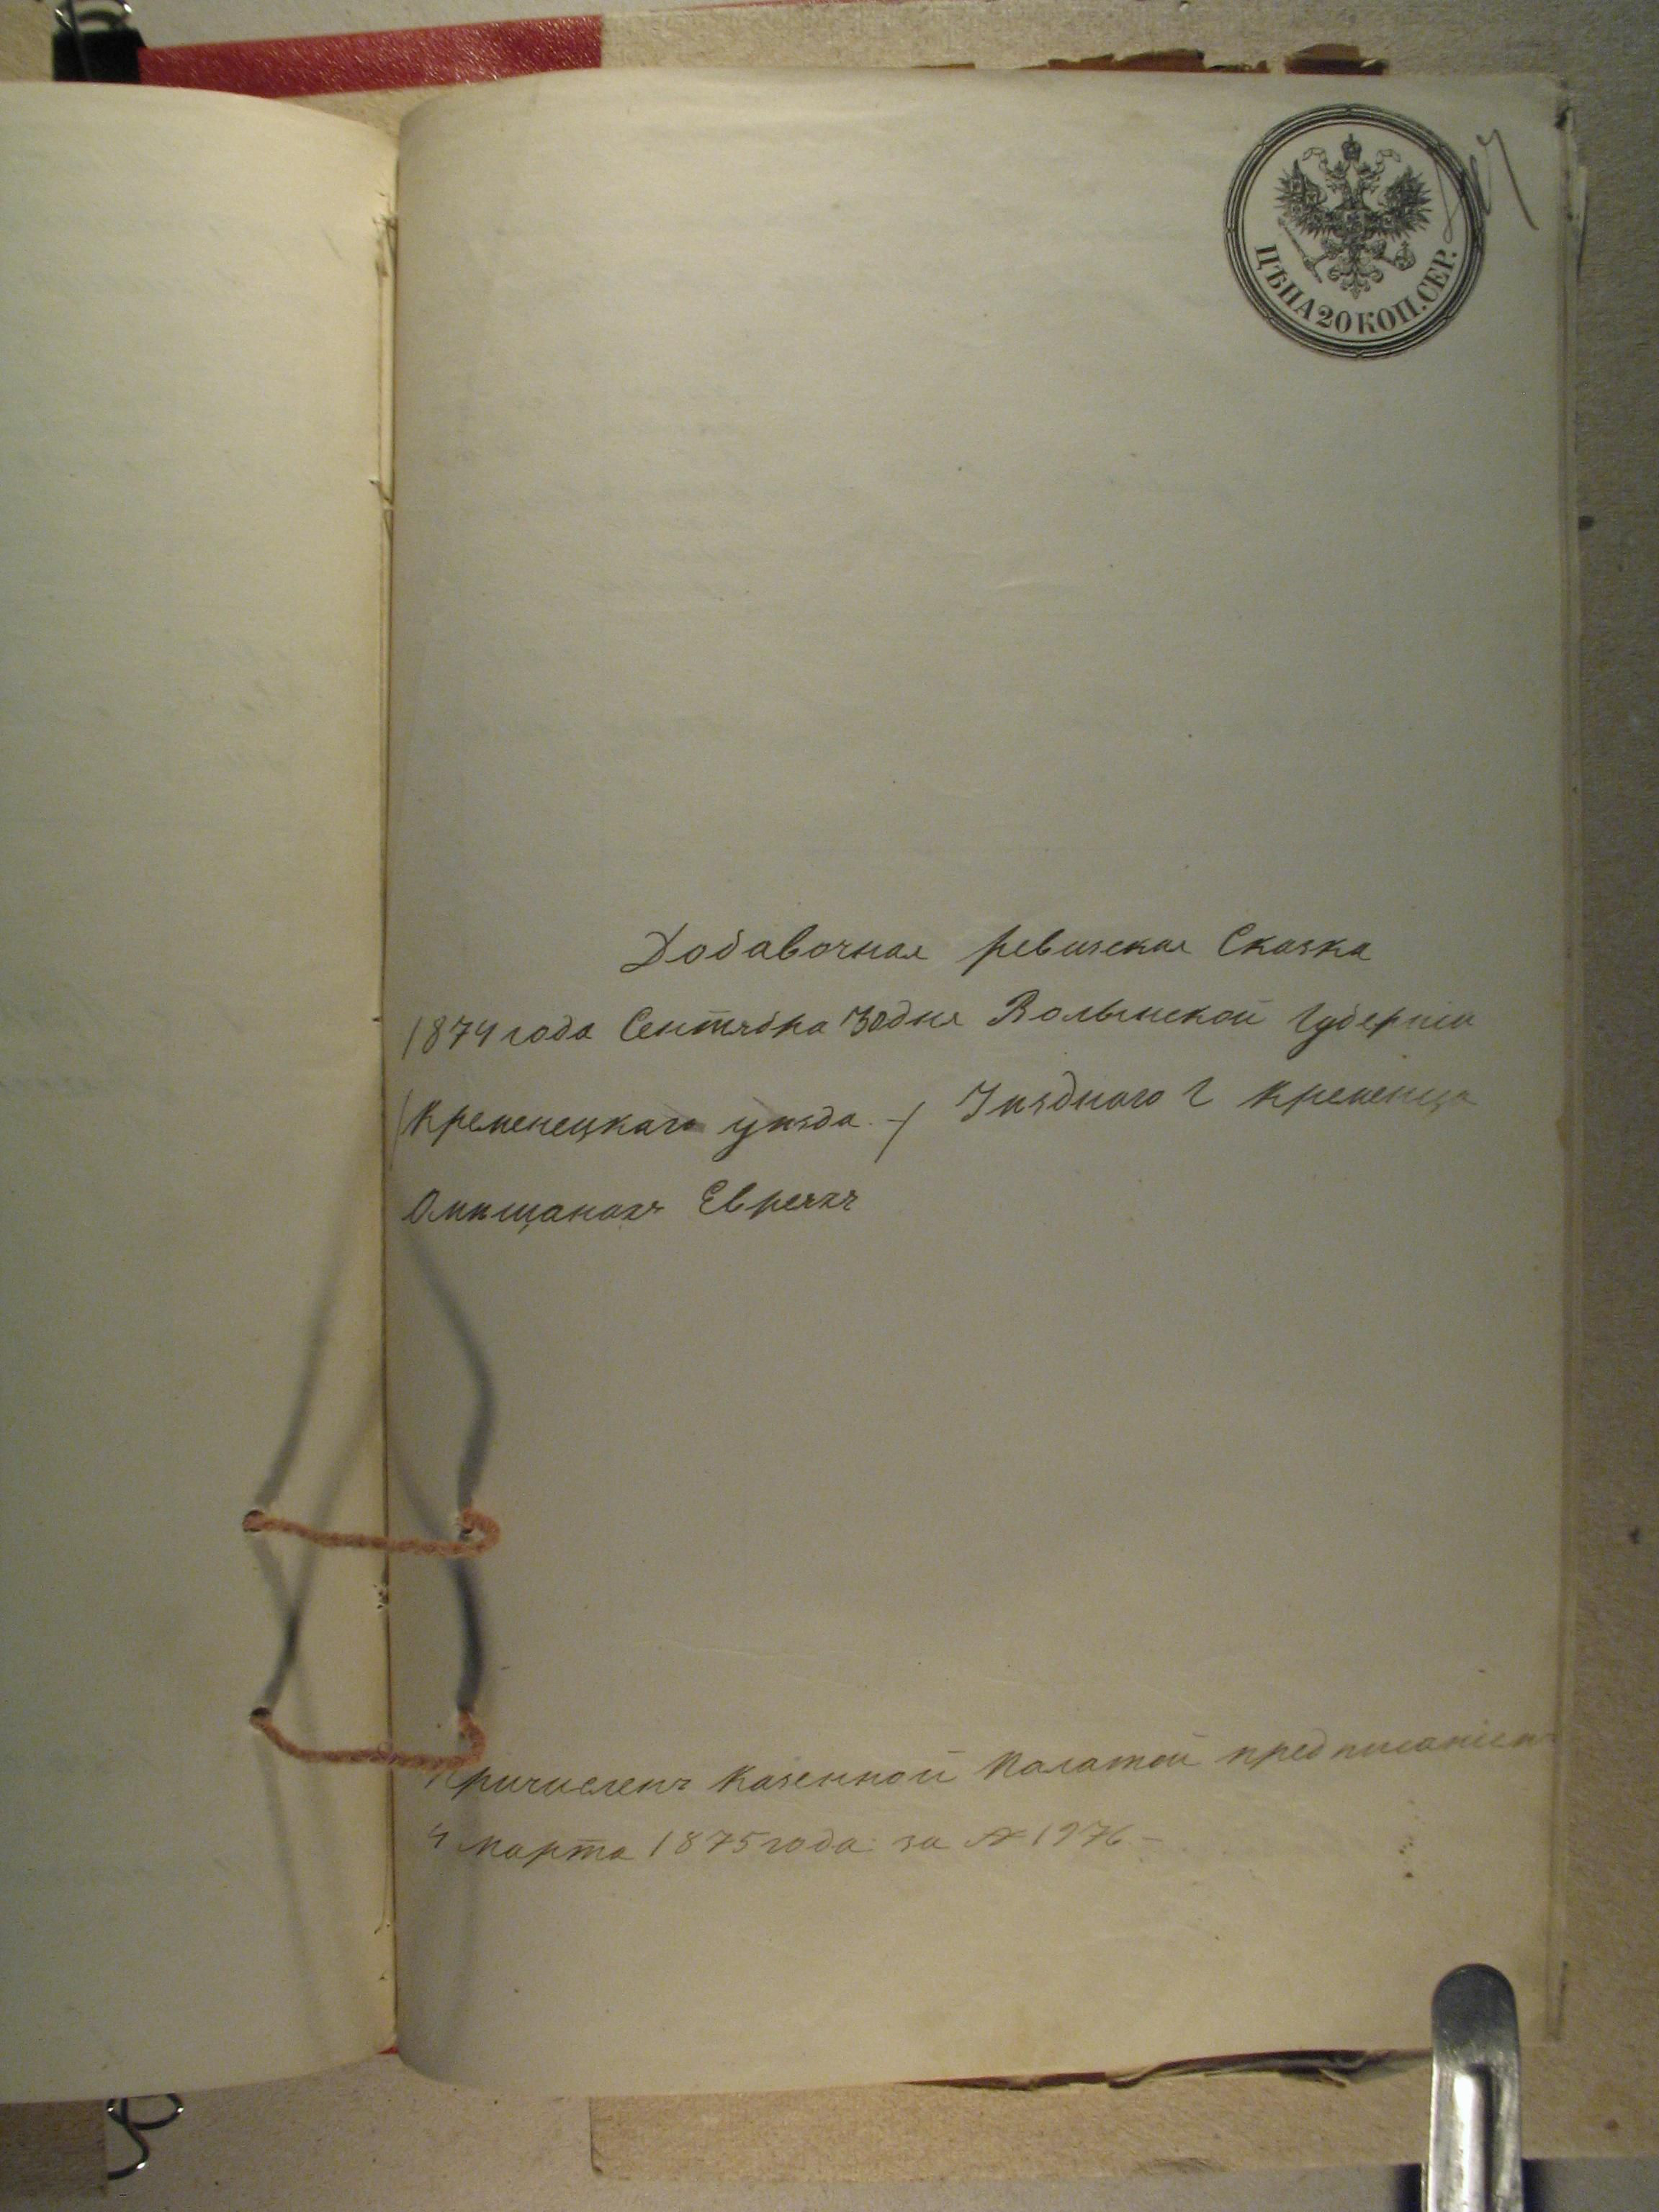 ЦѢНА 20 КОП. СЕР.
Добавочная ревизская Сказка
1874 года Сентября 30 дня Волынской Губерніи
/ Кременецкаго уѣзда. / Уѣзднаго г Кременца
О мѣщанахъ Евреяхъ
Причисленъ Казенной Палатой предписаніемъ
4 марта 1875 года за № 1976 –